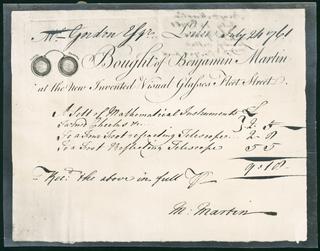 Mr. Gordon Esqr. London July 24 1761
Bought of Benjamin Martin
at the New Invented Visual Glasses Fleet Street.
A Sett of Mathematical Instruments £
2
To a four Foot refracting Telescope 2 - 8
To a Foot Reflecting Telescope 5 5
9 18
Recd. the above in full
Martin